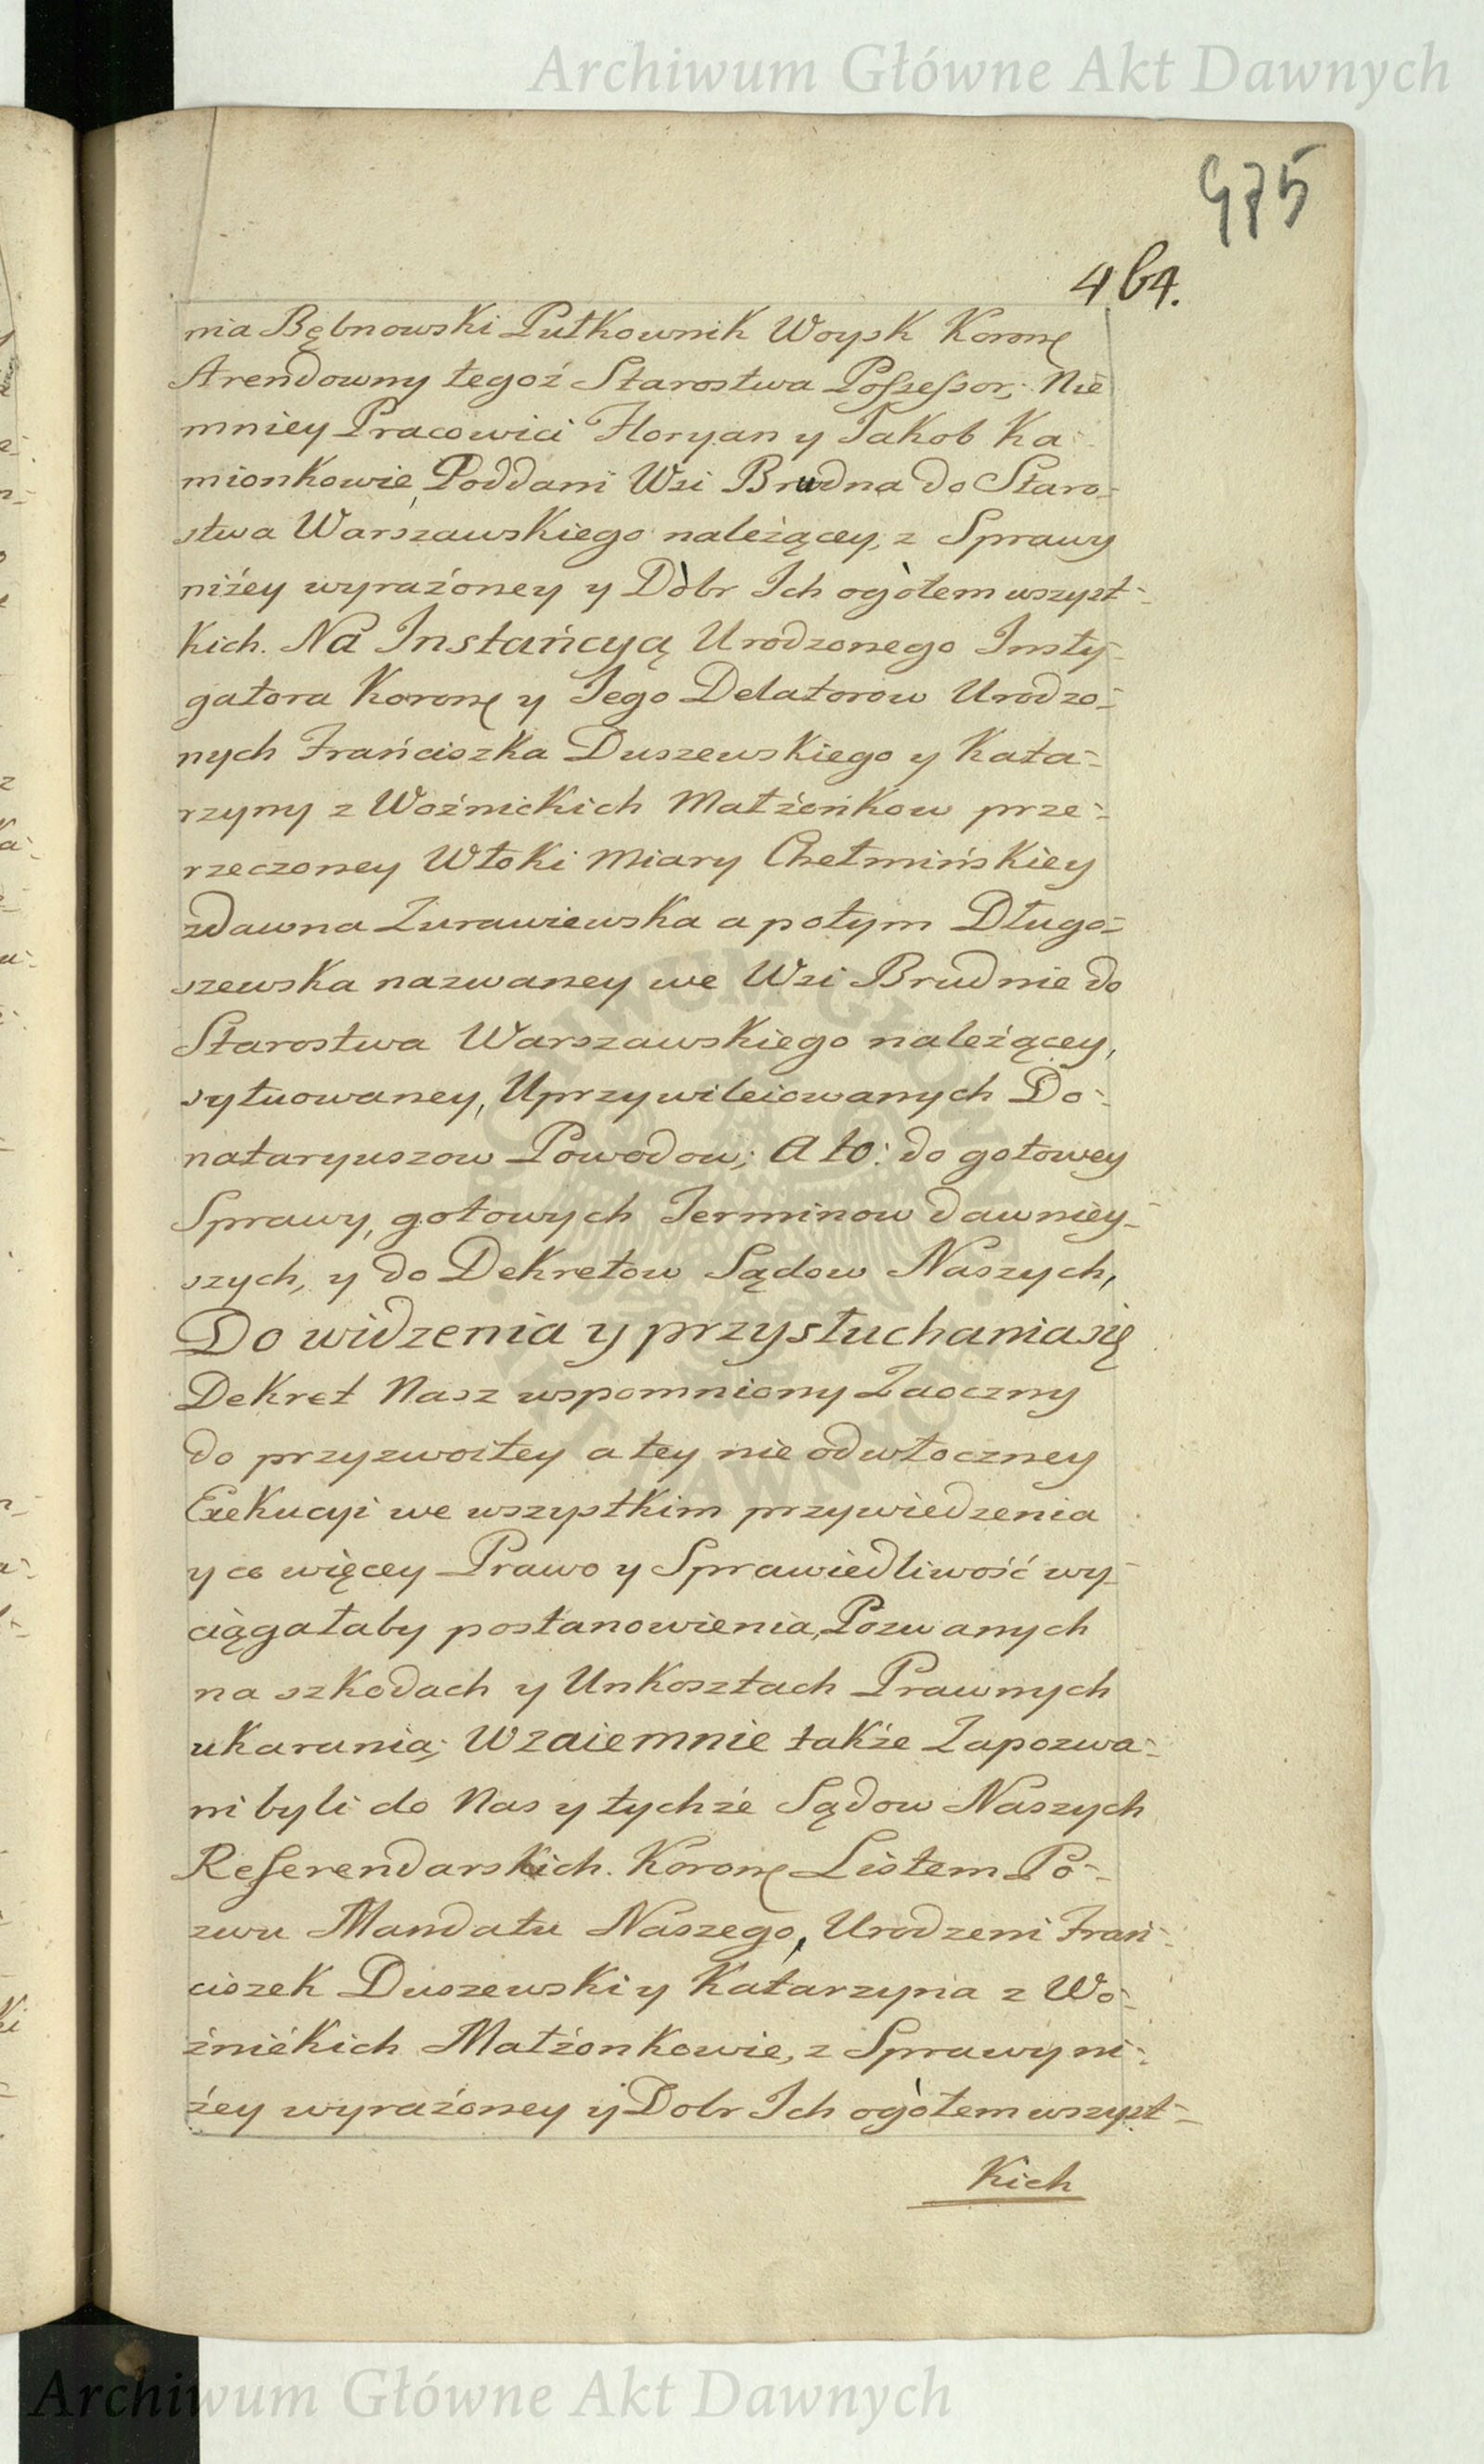 Archiwum Główne Akt Dawnych
475
464.
nia Bębnowski Pułkownik Woysk Koron
Arendowny tegoż Starostwa Possessor; Nie
mniey Pracowici Floryan y Jakob Ka-
mionkowie, Poddani Wsi Brudna do Staro-
stwa Warszawskiego należącey, z Sprawy
niżey wyrażoney y Dòbr Ich ogòłem wszyst-
kich. Na Instańcyą Urodzonego Insty-
gatora Koron y Jego Delatorow Urodzo-
nych Frańciszka Duszewskiego y Kata-
rzyny z Woźnickich Małżonkow prze-
rzeczoney Włoki Miary Chełmińskiey
zdawna Zurawiewska a potym Długo-
szewska nazwaney we Wsi Brudnie do
Starostwa Warszawskiego należącey,
sytuowaney, Uprzywileiowanych Do-
nataryuszow Powodow; A to: do gotowey
Sprawy, gotowych Terminow dawniey-
szych, y do Dekretow Sądow Naszych,
Do widzenia y przysłuchania się
Dekret Nasz wspomniony Zaoczny
do przyzwoitey a tey nie odwłoczney
Exekucyi we wszystkim przywiedzenia
y co więcey Prawo y Sprawiedliwość wy-
ciągałaby postanowienia, Pozwanych
na szkodach y Unkosztach Prawnych
ukarania; Wzaiemnie także Zapozwa-
ni byli do Nas y tychże Sądow Naszych
Referendarskich. Koron Listem Po-
zwu Mandatu Naszego, Urodzeni Frań-
ciszek Duszewski y Katarzyna z Wo-
źnickich Małżonkowie, z Sprawy ni-
żey wyrażoney y Dobr Ich ogòłem wszyst-
kich
Archiwum Główne Akt Dawnych